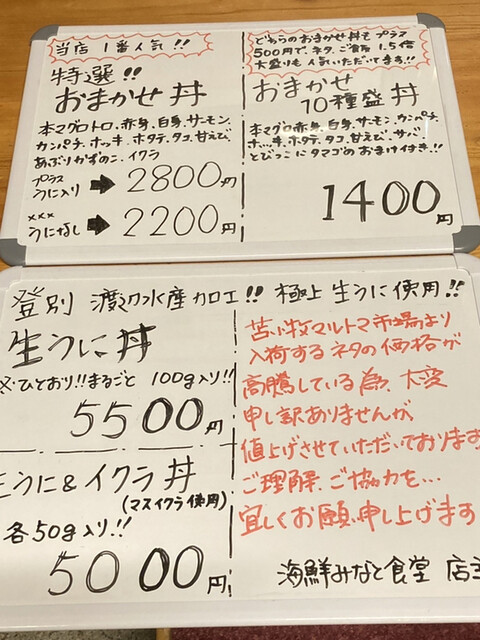 当店 1番人気!!
特選!!
おまかせ丼
本マグロトロ、赤身、白身、サーモン、
カンパチ、ホッキ、ホタテ、タコ、甘えび、
あぶりかずのこ、イクラ
プラス
うに入り ➡ 2800円
×××
うになし ➡ 2200円
どちらのおまかせ丼もプラス
500円で、ネタ、ご飯 1.5倍
大盛りも人気いただいてます!!
おまかせ
10種盛丼
本マグロ赤身、白身、サーモン、カンパチ、
ホッキ、ホタテ、タコ、甘えび、サバ、
とびっこにタマゴのおまけ付き!!
1400円
登別 渡辺水産加工!! 極上生うに使用!!
生うに丼
ひとおり!!まるごと 100g入り!!
5500円
生うに&イクラ丼
(マスイクラ使用)
各50g入り!!
5000円
苫小牧マルトマ市場より
入荷するネタの価格が
高騰している為、大変
申し訳ありませんが
値上げさせていただいております
ご理解、ご協力を…
宜しくお願い申し上げます
海鮮みなと食堂 店主